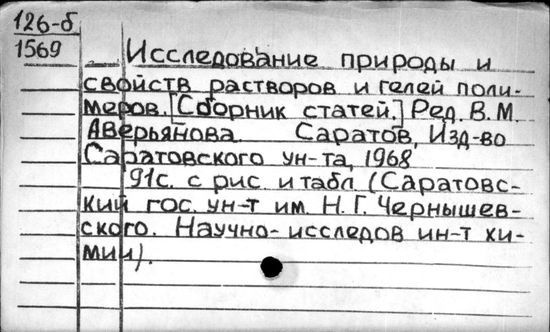 126-б
1569
Исследование природы и
свойств растворов и гелей поли-
меров. [Сборник статей.] Ред. В.М.
Аверьянова. Саратов, Изд-во
Саратовского ун-та, 1968
91с. с рис. и табл (Саратовс-
кий гос. ун-т им. Н.Г. Чернышев-
ского. Научно-исследов ин-т хи-
мии).